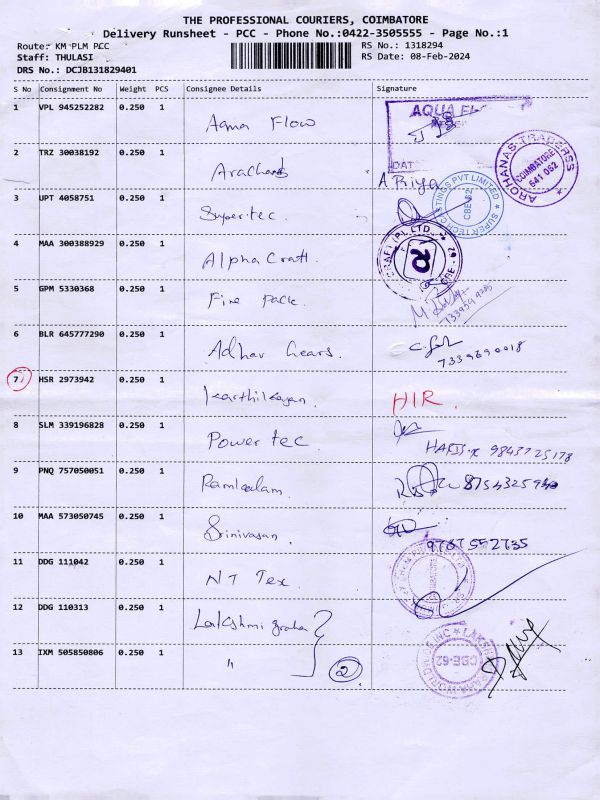 THE PROFESSIONAL COURIERS, COIMBATORE
Delivery Runsheet - PCC - Phone No.:0422-3505555 - Page No.:1
Route: KM PLM PCC RS No.: 1318294
Staff: THULASI RS Date: 08-Feb-2024
DRS No.: DCJB131829401
S No Consignment No Weight PCS Consignee Details Signature
1 VPL 945252282 0.250 1 Aqua Flow AQUA
2 TRZ 30038192 0.250 1 DAT
A Priya
AROHANAS TRADERSS COIMBATORE 641 062
3 UPT 4058751 0.250 1 Supertec.
SUPER TECH CASTINGS PVT LIMITED CBE-62
4 MAA 300388929 0.250 1 Alpha Craft.
CRAFT (P) LTD. CBE - 62 α
5 GPM 5330368 0.250 1 Fire Pack.
6 BLR 645777290 0.250 1 Adhav Gears.
7339690018
7 HSR 2973942 0.250 1 Karthikayan. HIR.
8 SLM 339196828 0.250 1 Power tec.
9843725178
9 PNQ 757050051 0.250 1
10 MAA 573050745 0.250 1 Srinivasan.
9787552735
11 DDG 111042 0.250 1 NT Tex.
12 DDG 110313 0.250 1 Lakshmi graha
13 IXM 505850806 0.250 1 "
2
CBE-62